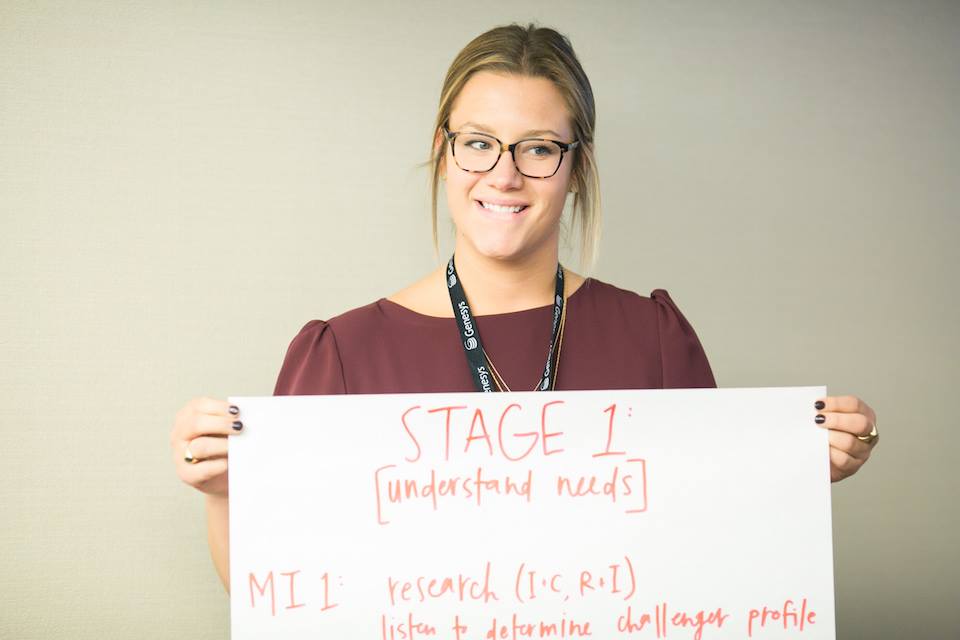 Genesys
Genesys
STAGE 1:
[understand needs]
MI 1: research (I+C, R+I)
listen to determine challenger profile